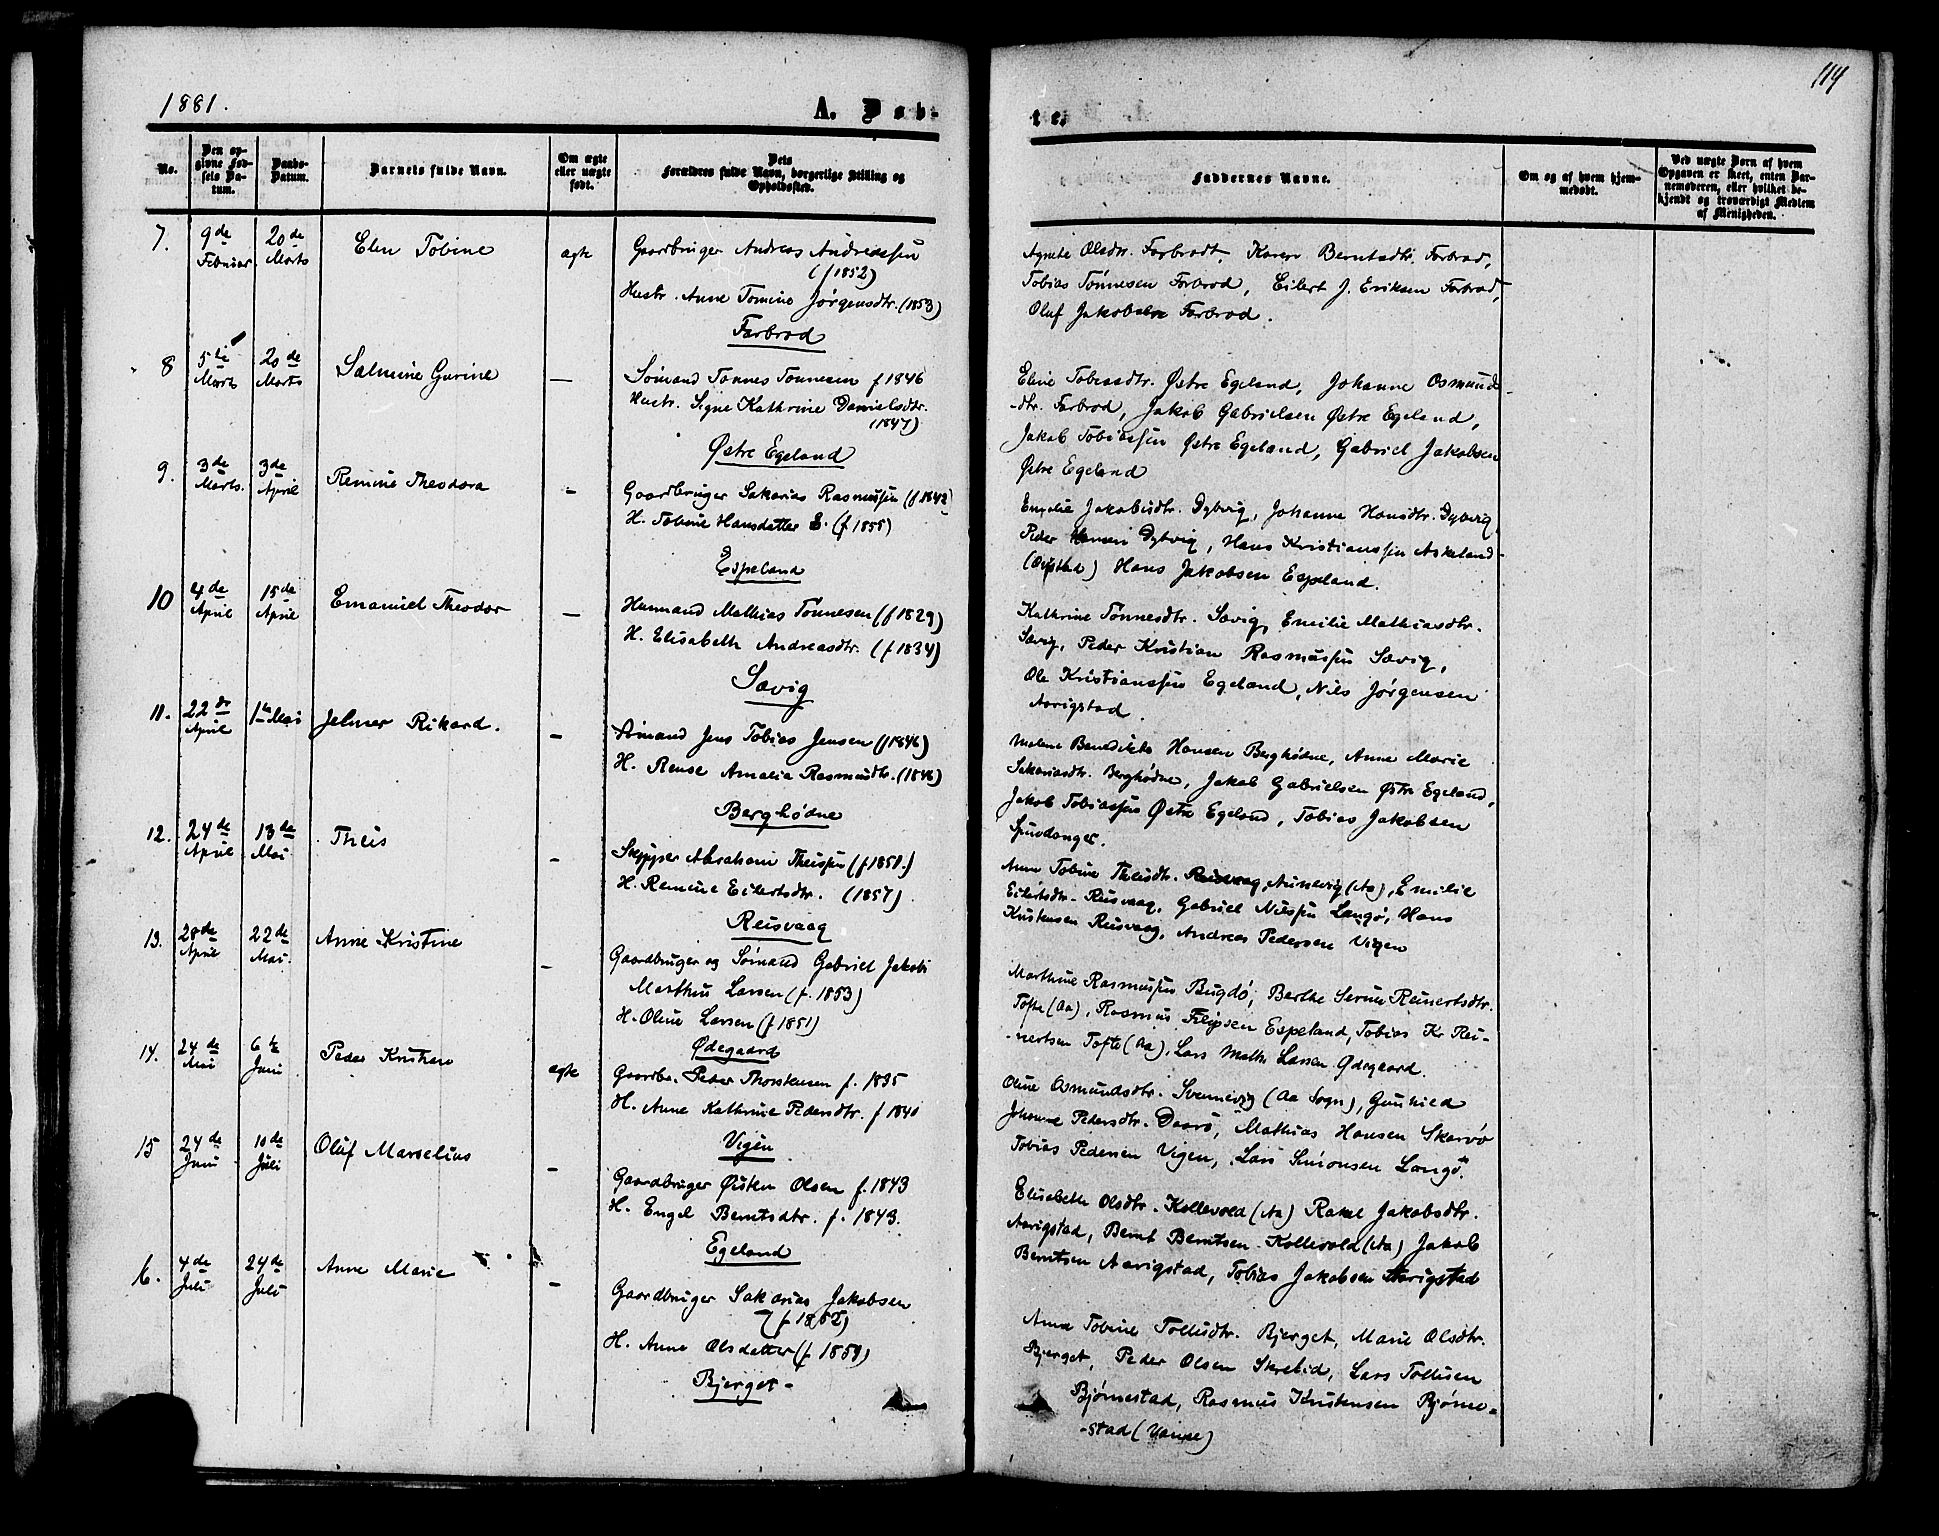 1881.
A. Døb-
te.
114
No.
Den op-
givne Fød-
sels Da-
tum.
Daabs-
Datum.
Barnets fulde Navn.
Om ægte
eller uægte
født.
Dets
Forældres fulde Navn, borgerlige Stilling og
Opholdssted.
Faddernes Navne.
Om og af hvem hjem-
medøbt.
Ved uægte Børn af hvem
Opgaven er skeet, enten Bar-
nemoderen, eller hvilket be-
kjendt og troværdigt Medlem
af Menigheden.
7. 9de Februar 20de Marts Elen Tobine ægte
Gaardbruger Andreas Andreassen
(f 1852)
Hustr. Anne Tomine Jørgensdtr. (1853)
Farbrod
Agnete Olsdtr. Farbrodt, Karen Berntsdtr. Farbrod,
Tobias Tønnesen Farbrod, Eilert J. Eriksen Farbrod,
Oluf Jakobsen Farbrod.
8 5te Marts 20de Marts Salmine Gurine —
Sömand Tönnes Tönnesen f 1846
Hustr. Signe Kathrine Danielsdtr.
(1847)
Østre Egeland
Eline Tobiasdtr. Østre Egeland, Johanne Osmunds-
-dtr. Farbrod, Jakob Gabrielsen Østre Egeland,
Jakob Tobiassen Østre Egeland, Gabriel Jakobsen
Østre Egeland
9. 3de Marts. 3de April Remine Theodora —
Gaardbruger Sakarias Rasmussen (f 1842)
H. Tobine Hansdatter E. (f 1855)
Espeland
Engelie Jakobsdtr. Dybvig, Johanne Hansdtr. Dybvig
Peder Hansen Dybvig, Hans Kristianssen Askeland
Hans Jakobsen Espeland.
10 4de April 15de April Emanuel Theodor —
Husmand Mathias Tönnesen (f 1829)
H. Elisabeth Andreasdtr. (f 1834)
Sævig
Kathrine Tönnesdtr. Sævig, Emilie Mathiasdtr.
Sævig, Peder Kristian Rasmussen Sævig,
Ole Kristianssen Egeland, Nils Jørgensen
Aavigstad.
11. 22de April 1ste Mai Jelmer Rikard. —
Sömand Jens Tobias Jensen (f 1846)
H. Rense Amalia Rasmusdtr. (1846)
Berghödne
Malene Benedikte Hansen Berghödne, Anne Marie
Sakariasdtr. Berghödne, Jakob Gabrielsen Østre Egeland,
Jakob Tobiassen Østre Egeland, Tobias Jakobsen
Spindanger.
12. 24de April 13de Mai Theis —
Skipper Abraham Theissen (f 1851.)
H. Remine Eilertsdtr. (1857)
Reisvaag
Anne Tobine Theisdtr. Aunevig (Aa), Emilie
Eilertsdtr. Reisvaag, Gabriel Nilssen Langö, Hans
Kristensen Reisvaag, Andreas Pedersen Vigen
13. 28de April 22de Mai. Anne Kristine —
Gaardbruger og Sömand Gabriel Jakob
Marthin Larsen (f. 1853)
H. Oline Larsen (f 1851)
Ødegaard
Marthine Rasmussen Bugdö, Berthe Serine Reinertsdtr.
Tofte (Aa), Rasmus Filipsen Espeland, Tobias Kr Rei-
-nertsen Tofte (Aa), Lars Math. Larsen Ødegaard.
14. 24de Mai 6te Juni Peder Kristian ægte
Gaardbr. Peder Thorstensen f. 1835
H. Anne Kathrine Pedersdtr. f 1840
Vigen
Oline Osmundsdtr. Svennevig (Aa Sogn), Gunhild
Johanne Pedersdtr. Daarö, Mathias Hansen Skarvö
Tobias Pedersen Vigen, Lars Simonsen Langö.
15 24de Juni 10de Juli Oluf Marselius —
Gaardbruger Østen Olsen f. 1843
H. Engel Berntsdtr. f. 1843.
Egeland
Elisabeth Olsdtr. Kollevold (Aa) Rakel Jakobsdtr.
Aavigstad, Bernt Berntsen Kollevold (Aa) Jakob
Berntsen Aavigstad, Tobias Jakobsen Aavigstad
6. 4de Juli 24de Juli Anne Marie —
Gaardbruger Sakarias Jakobsen
(f 1852)
H. Anne Olsdatter (f 1859)
Bjerget-
Anna Tobine Tollisdtr. Bjerget, Marie Olsdtr.
Bjerget, Peder Olsen Skrelid, Lars Tollisen
Bjørnestad, Rasmus Kristensen Bjørne-
-stad (Vanse)